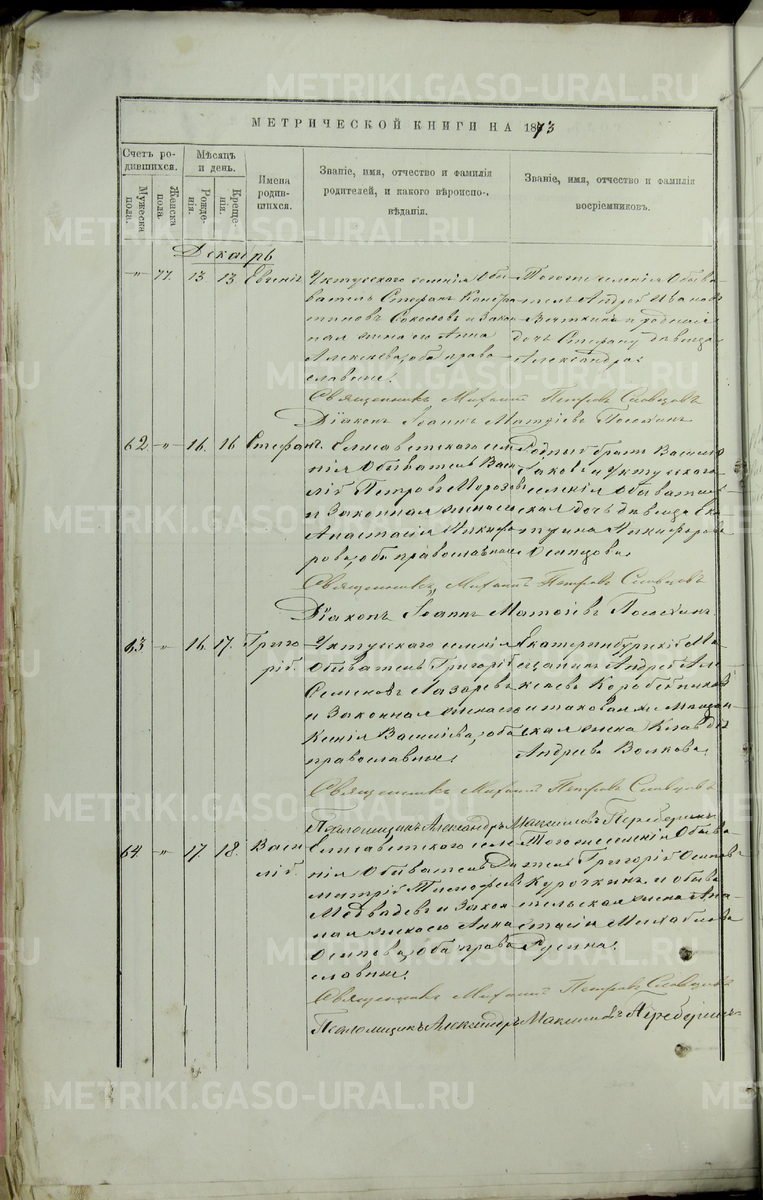 МЕТРИЧЕСКОЙ КНИГИ НА 1873
Счетъ ро-
дившихся.
Мужеска
пола.
Женска
пола.
Мѣсяцъ
и день.
Рожде-
нія.
Креще-
нія.
Имена
родив-
шихся.
Званіе, имя, отчество и фамилія
родителей, и какого вѣроиспо-
вѣданія.
Званіе, имя, отчество и фамилія
воспріемниковъ.
Декабрь
-„- 77. 13. 13. Евгенія
Уктусскаго селенія Обы
ватель Стефанъ Конста
тиновъ Соколовъ и Закон
ная жена его Анна
Алексѣева, оба право
славные.
Тогоже селенія Обыва
тель Андрей Иванов
Вяткинъ и родная
дочь Стефану дѣвица
Александра.
Священникъ Михаилъ Петровъ Словцовъ
Діаконъ Іоаннъ Матѳіевъ
62. -„- 16. 16. Стефанъ.
Елисаветскаго селе
нія Обыватель Васи
лій Петровъ Морозовъ
и Законная жена его
Анастасія Никифо
рова, оба православные
Родный братъ Василію
Іаковъ и Уктусскаго
селенія Обыватель
ская дочь дѣвица Ека
терина Никифорова
Осинцова.
Священникъ Михаилъ Петровъ Словцовъ
Діаконъ Іоаннъ Матѳіевъ
63. -„- 16. 17. Григо
рій.
Уктусскаго селенія
Обыватель Григорій
Семеновъ Лазаревъ
и Законная жена его
Ксенія Васильева, оба
православные.
Екатеринбургскій Мѣ
щанинъ Андрей Але
ксѣевъ Коробейниковъ
и таковая же Мѣщан
ская жена Клавдія
Андреева Волкова.
Священникъ Михаилъ Петровъ Словцовъ
Псаломщикъ Александръ Максимовъ
64. -„- 17. 18. Васи
лій.
Елисаветскаго селе
нія Обыватель Ди
митрій Тимофеевъ
Медвѣдевъ и Закон
ная жена его Анна
Осипова, оба право
славные.
Тогоже селенія Обыва
тель Григорій Осиповъ
Курочкинъ и обыва
тельская жена Ана
стасія Михайлова
Священникъ Михаилъ Петровъ Словцовъ
Псаломщикъ Александръ Максимовъ
METRIKI.GASO-URAL.RU